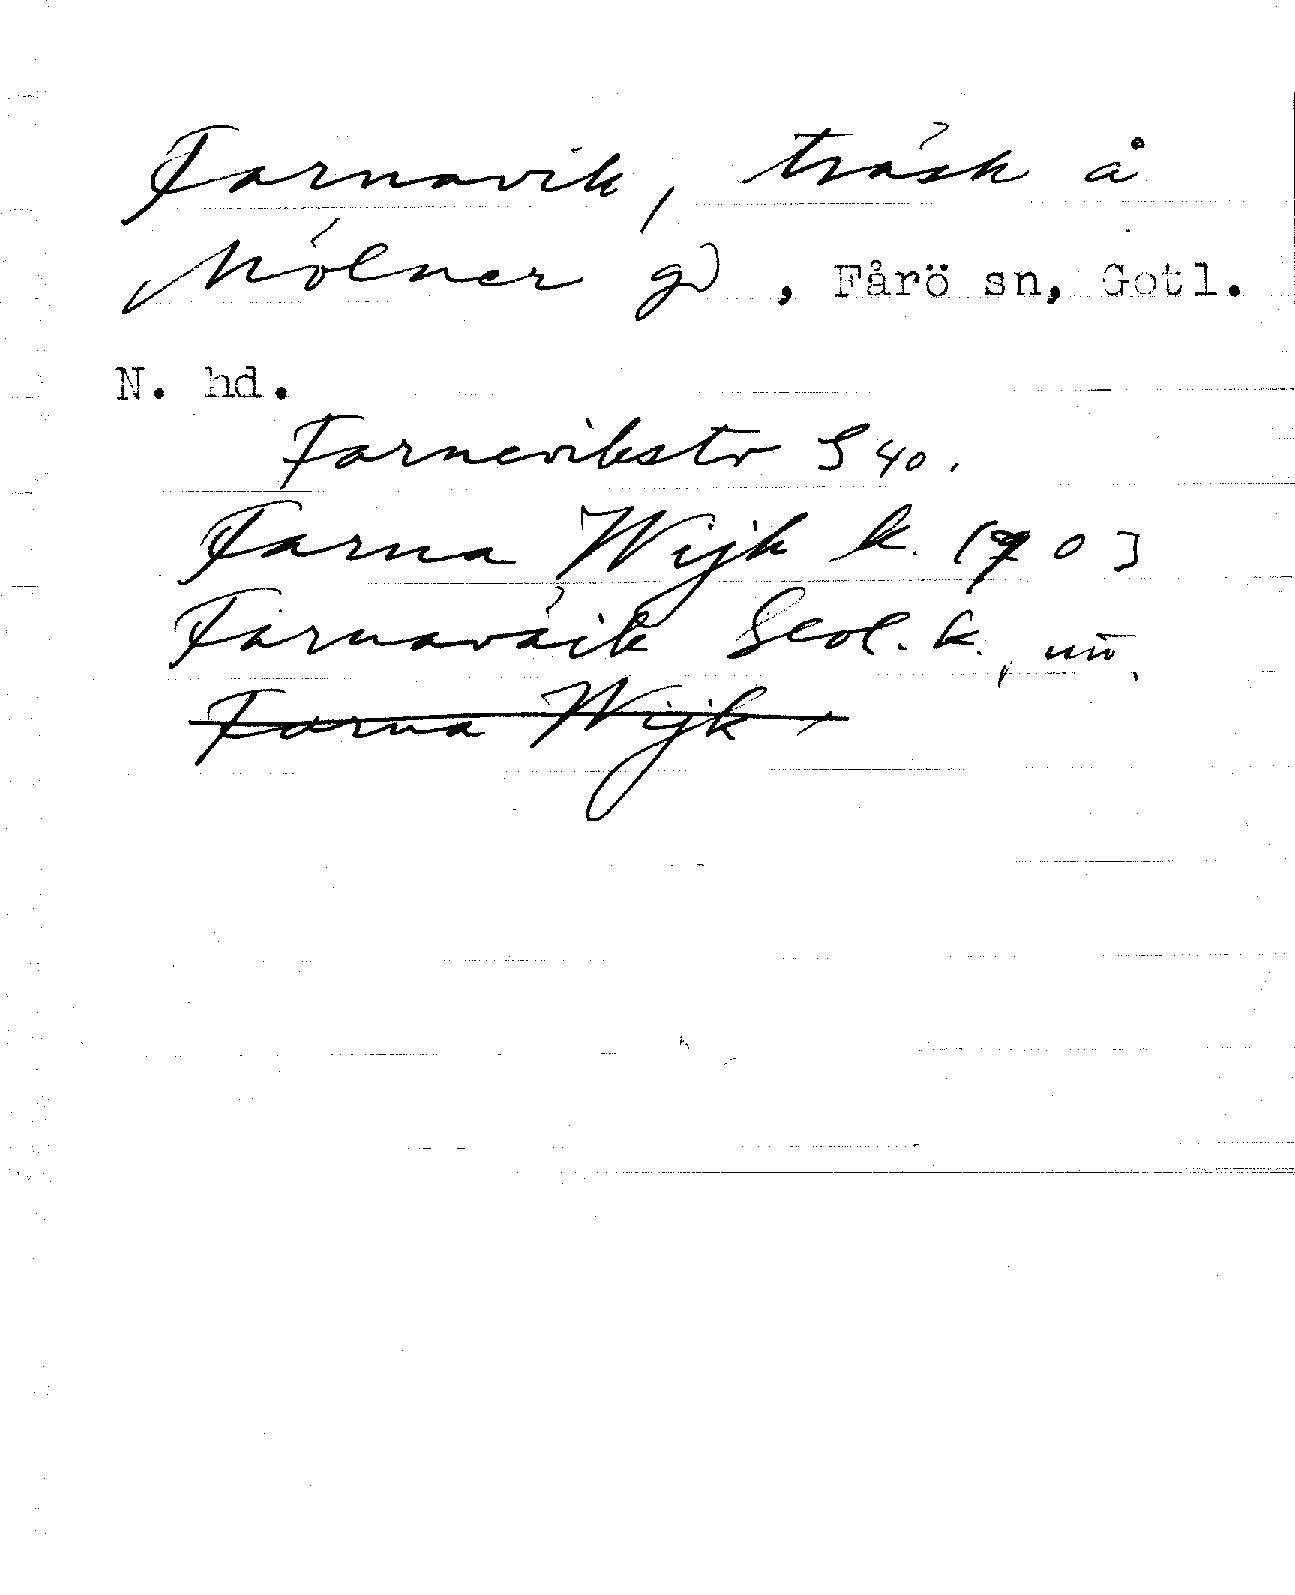 Farnavik, träsk å
Mölner gd, Fårö sn, Gotl.
N. hd.
Farnevikstr S 40.
Farna Wijk k. (70]
Farnaväik Geol. k.,
Farna Wijk